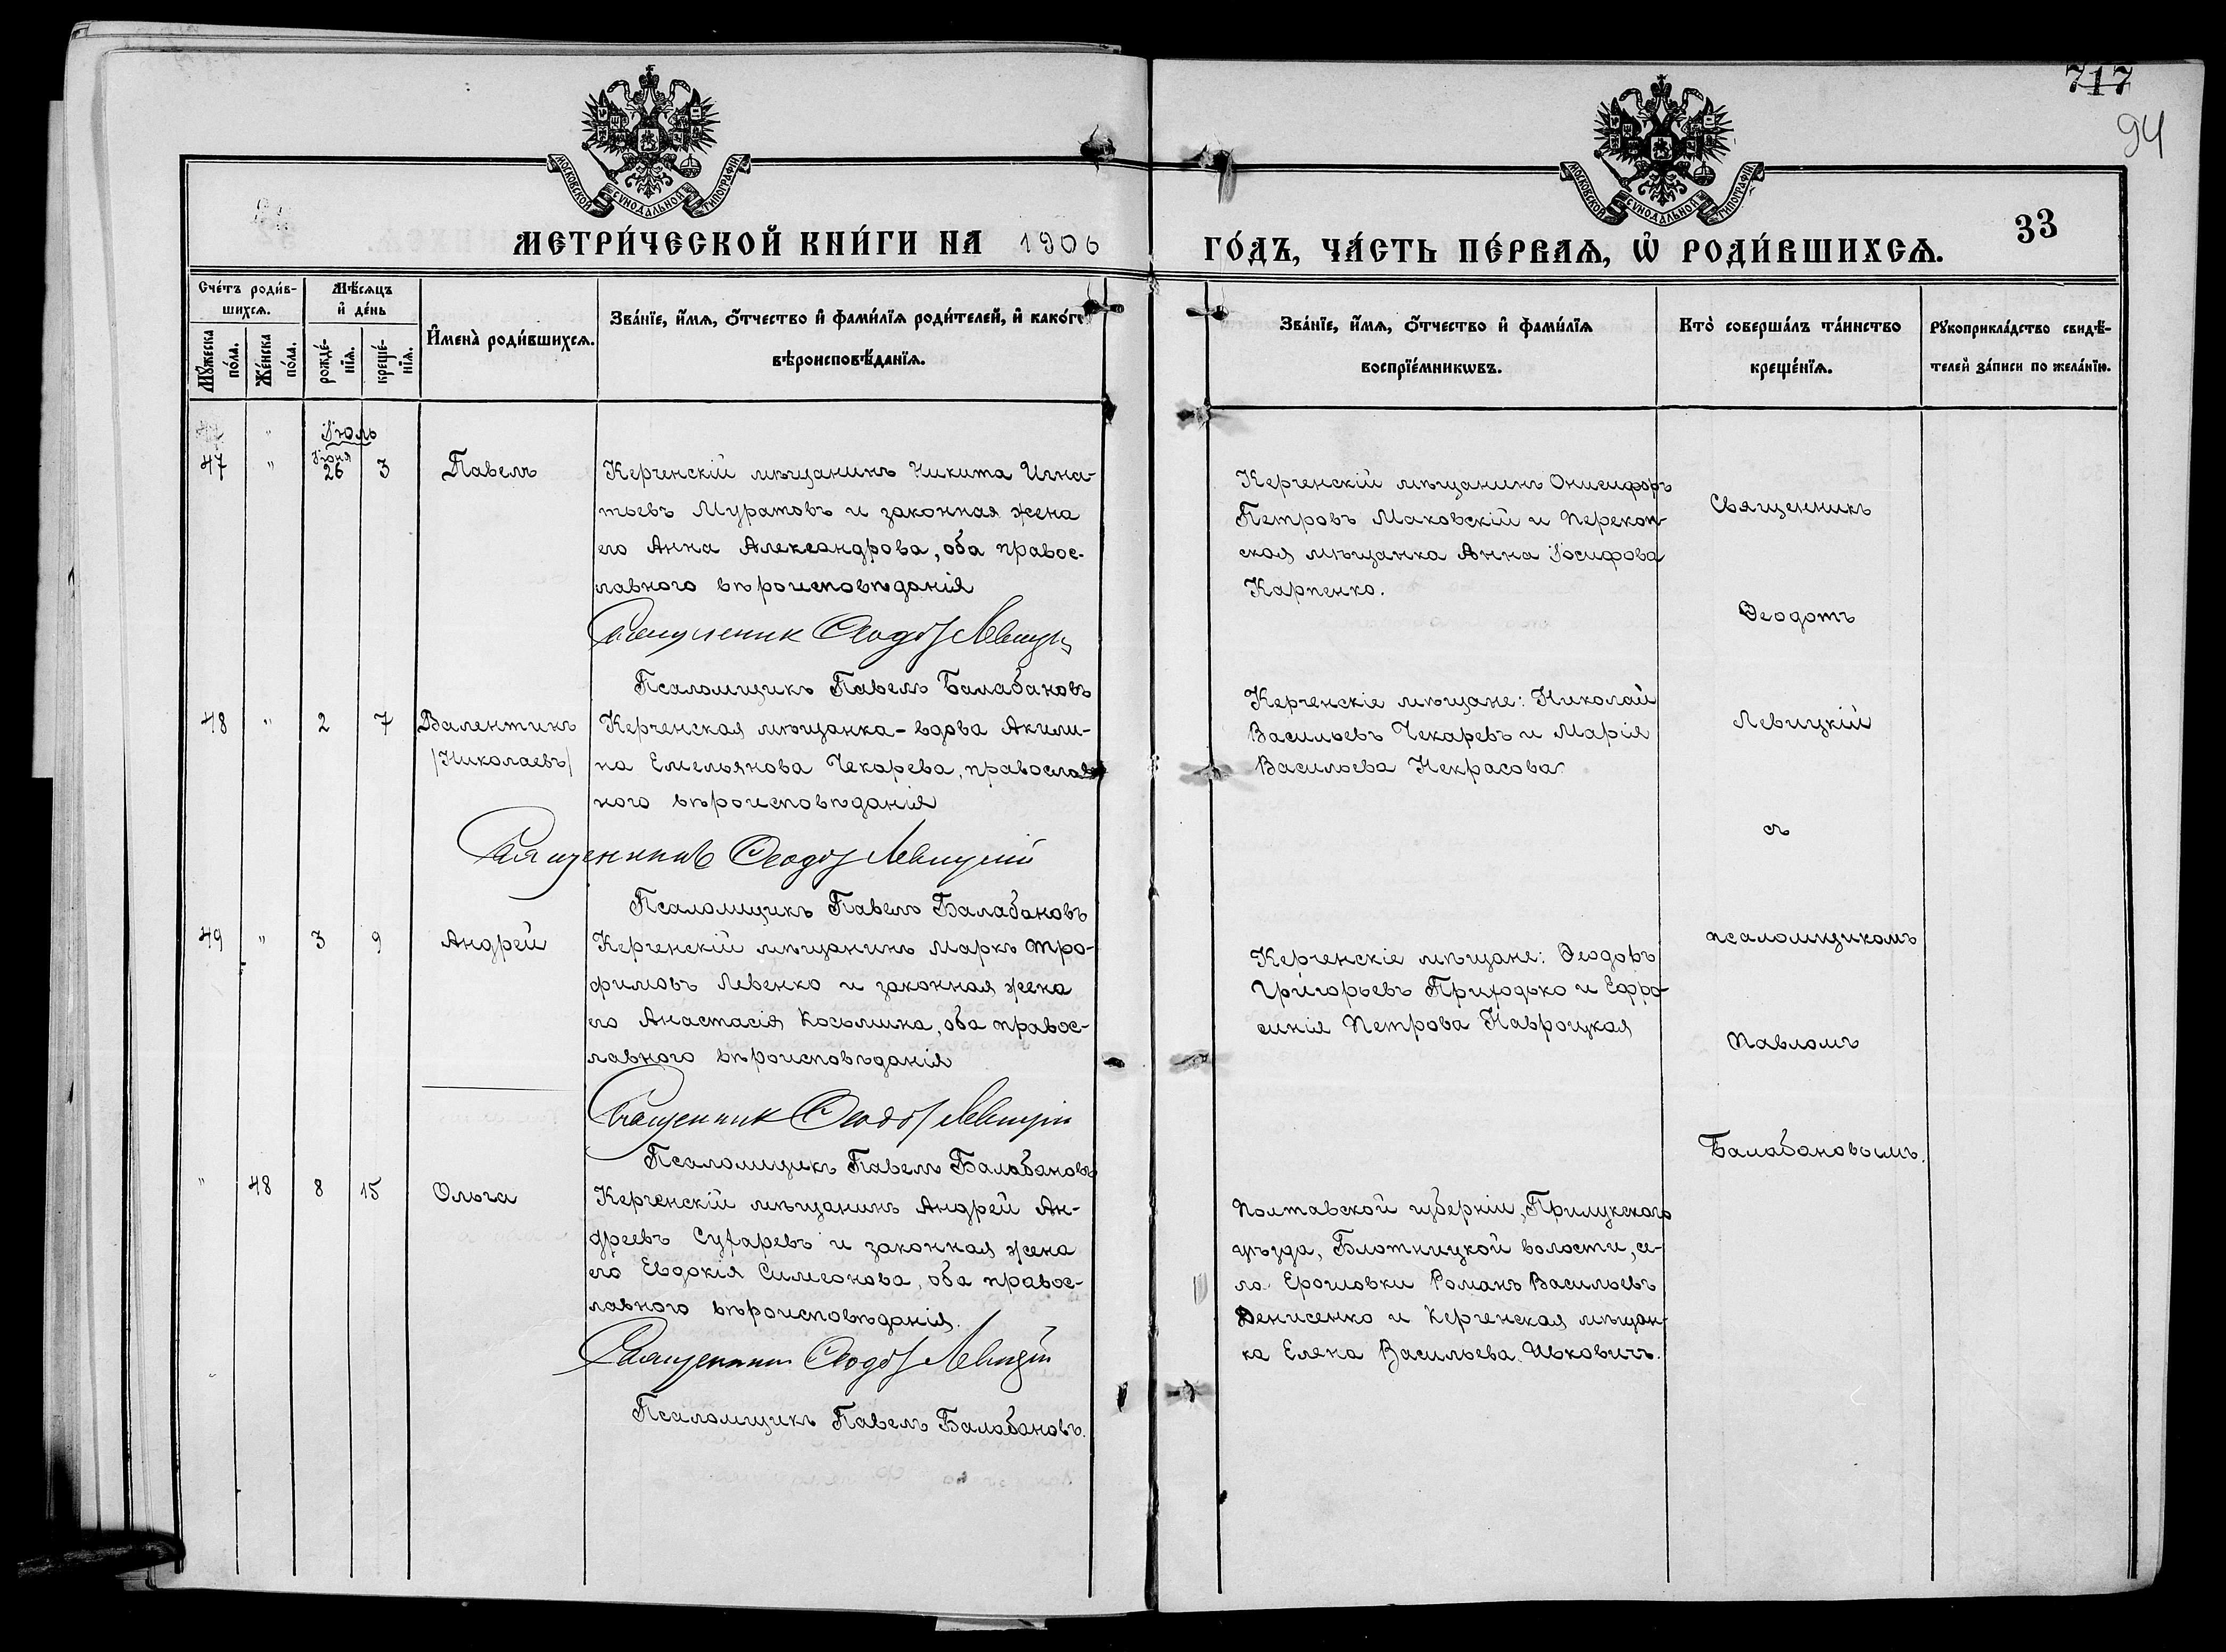 717
94
МОСКОВСКОЙ СѴНОДАЛЬНОЙ ТИПОГРАФІИ
МОСКОВСКОЙ СѴНОДАЛЬНОЙ ТИПОГРАФІИ
МЕТРИ́ЧЕСКОЙ КНИ́ГИ НА 1906
ГО́ДЪ, ЧА́СТЬ ПЕ́РВАѦ, Ѡ҆ РОДИ́ВШИХСѦ.
33
Сче́тъ роди́в-
шихсѧ.
Мꙋ́жеска по́ла.
Же́нска по́ла.
Мѣ́сѧцъ
и҆ де́нь
рожде́-нїѧ.
креще́-нїѧ.
И҆мена̀ роди́вшихсѧ.
Зва́нїе, и҆́мѧ, ѻ҆́тчество и҆ фами́лїѧ роди́телей, и҆ како́гѡ
вѣроисповѣ́данїѧ.
Зва́нїе, и҆́мѧ, ѻ҆́тчество и҆ фами́лїѧ
воспрїе́мникѡвъ.
Кто̀ соверша́лъ та́инство
креще́нїѧ.
Рꙋкоприкла́дство свидѣ́-
телей за́писи по жела́нїю.
"
Іюль
47 " Іюня 26 3 Павелъ
Керченскій мѣщанинъ Никита Игна-
тьевъ Муратовъ и законная жена
его Анна Александрова, оба правос-
лавного вѣроисповѣданія
Священник Феодот Левицкі
Псаломщикъ Павелъ Балабановъ
Керченскій мѣщанинъ Онисифоръ
Петровъ Маковскій и Перекоп-
ская мѣщанка Анна Іосифова
Карпенко.
48 " 2 7 Валентинъ
/Николаевъ/
Керченская мѣщанка-вдова Акили-
на Емельянова Чекарева, православ
ного вѣроисповѣданія
Священникъ Феодот Левицкій
Псаломщикъ Павелъ Балабановъ
Керченскіе мѣщане: Николай
Васильевъ Чекаревъ и Марія
Васильева Некрасова
49 " 3 9 Андрей
Керченскій мѣщанинъ Маркъ Тро-
фимовъ Левенко и законная жена
его Анастасія Косьмина, оба правос-
лавного вѣроисповѣданія
Священник Феодот Левицкій
Псаломщикъ Павелъ Балабановъ
Керченскіе мѣщане: Ѳеодоръ
Григорьевъ Приходько и Ефро-
синія Петрова Навроцкая
" 48 8 15 Ольга
Керченскій мѣщанинъ Андрей Ан-
дреевъ Сухаревъ и законная жена
его Евдокія Симеонова, оба правос-
лавного вѣроисповѣданія.
Священник Феодот Левицкій
Псаломщикъ Павелъ Балабановъ.
Полтавской губерніи, Прилукскаго
уѣзда, Блотницкой волости, се-
ла Ерошовки Романъ Васильевъ
Денисенко и Керченская мѣщан-
ка Елена Васильева Ивковичъ.
Священникъ
Ѳеодотъ
Левицкій
съ
псаломщикомъ
Павломъ
Балабановымъ.